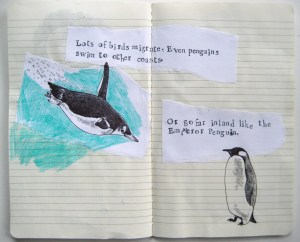 Lots of birds migrate: Even penguins
swim to other coasts
Or go far inland like the
Emperor Penguin.